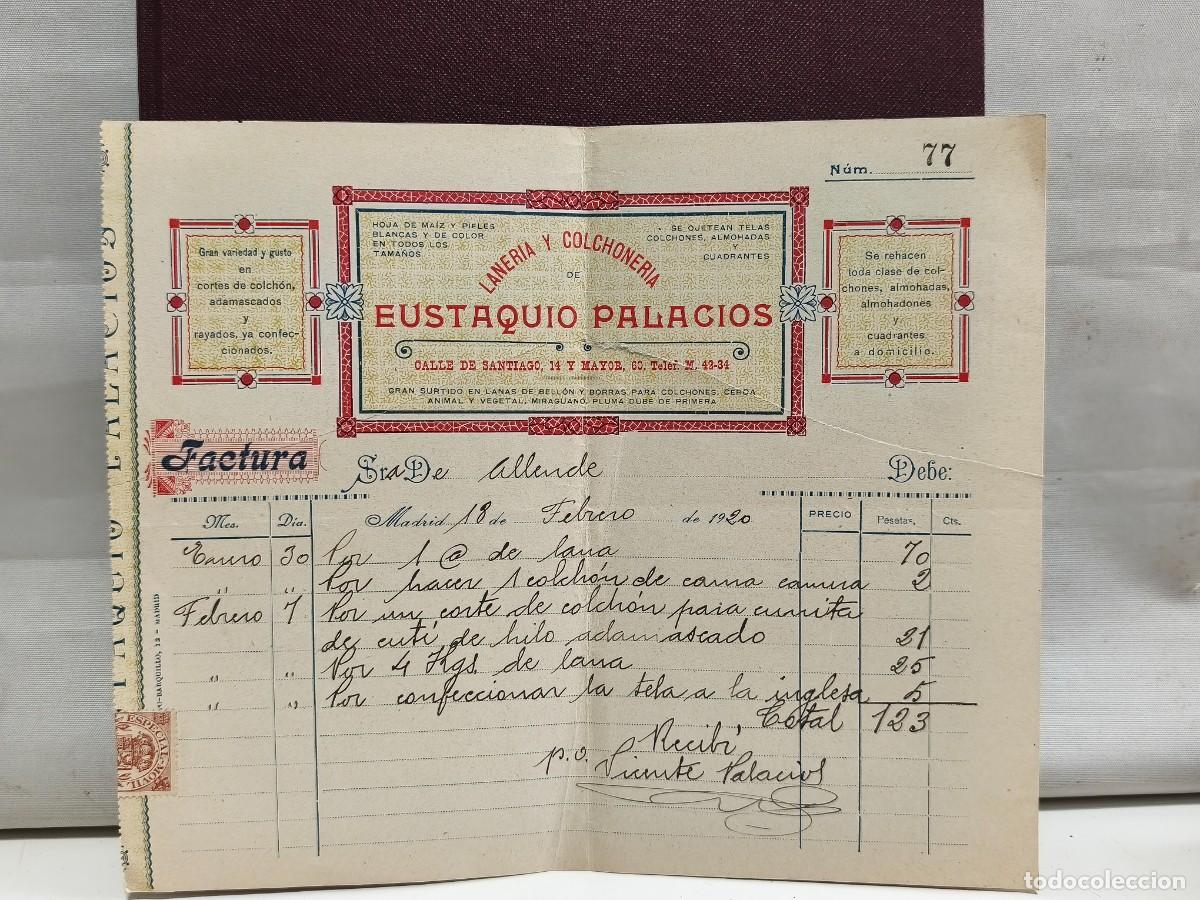 Núm. 77
Gran variedad y gusto
en
cortes de colchón,
adamascados
y
rayados, ya confec-
cionados.
HOJA DE MAÍZ Y PIELES
BLANCAS Y DE COLOR
EN TODOS LOS
TAMAÑOS
SE OJETEAN TELAS
COLCHONES, ALMOHADAS
Y
CUADRANTES
LANERIA Y COLCHONERIA
DE
EUSTAQUIO PALACIOS
CALLE DE SANTIAGO, 14 Y MAYOR, 60. Teléf. M. 42-34
GRAN SURTIDO EN LANAS DE BELLÓN Y BORRAS PARA COLCHONES, CERDA
ANIMAL Y VEGETAL, MIRAGUANO, PLUMA DUBÉ DE PRIMERA
Se rehacen
toda clase de col-
chones, almohadas,
almohadones
y
cuadrantes
a domicilio.
Factura
Sra De Allende Debe:
Mes. Día. Madrid 18 de Febrero de 1920 PRECIO Pesetas. Cts.
Enero 30 Por 1 @ de lana 70
" " Por hacer 1 colchón de cama camera 2
Febrero 7 Por un corte de colchón para cunita
de cutí de hilo adamascado 21
" " Por 4 Kgs. de lana 25
" " Por confeccionar la tela a la inglesa 5
Total 123
Recibí
p.o. Vicente Palacios
PALACIOS
BARQUILLO, 12 - MADRID
ESPECIAL MOVIL
todocoleccion